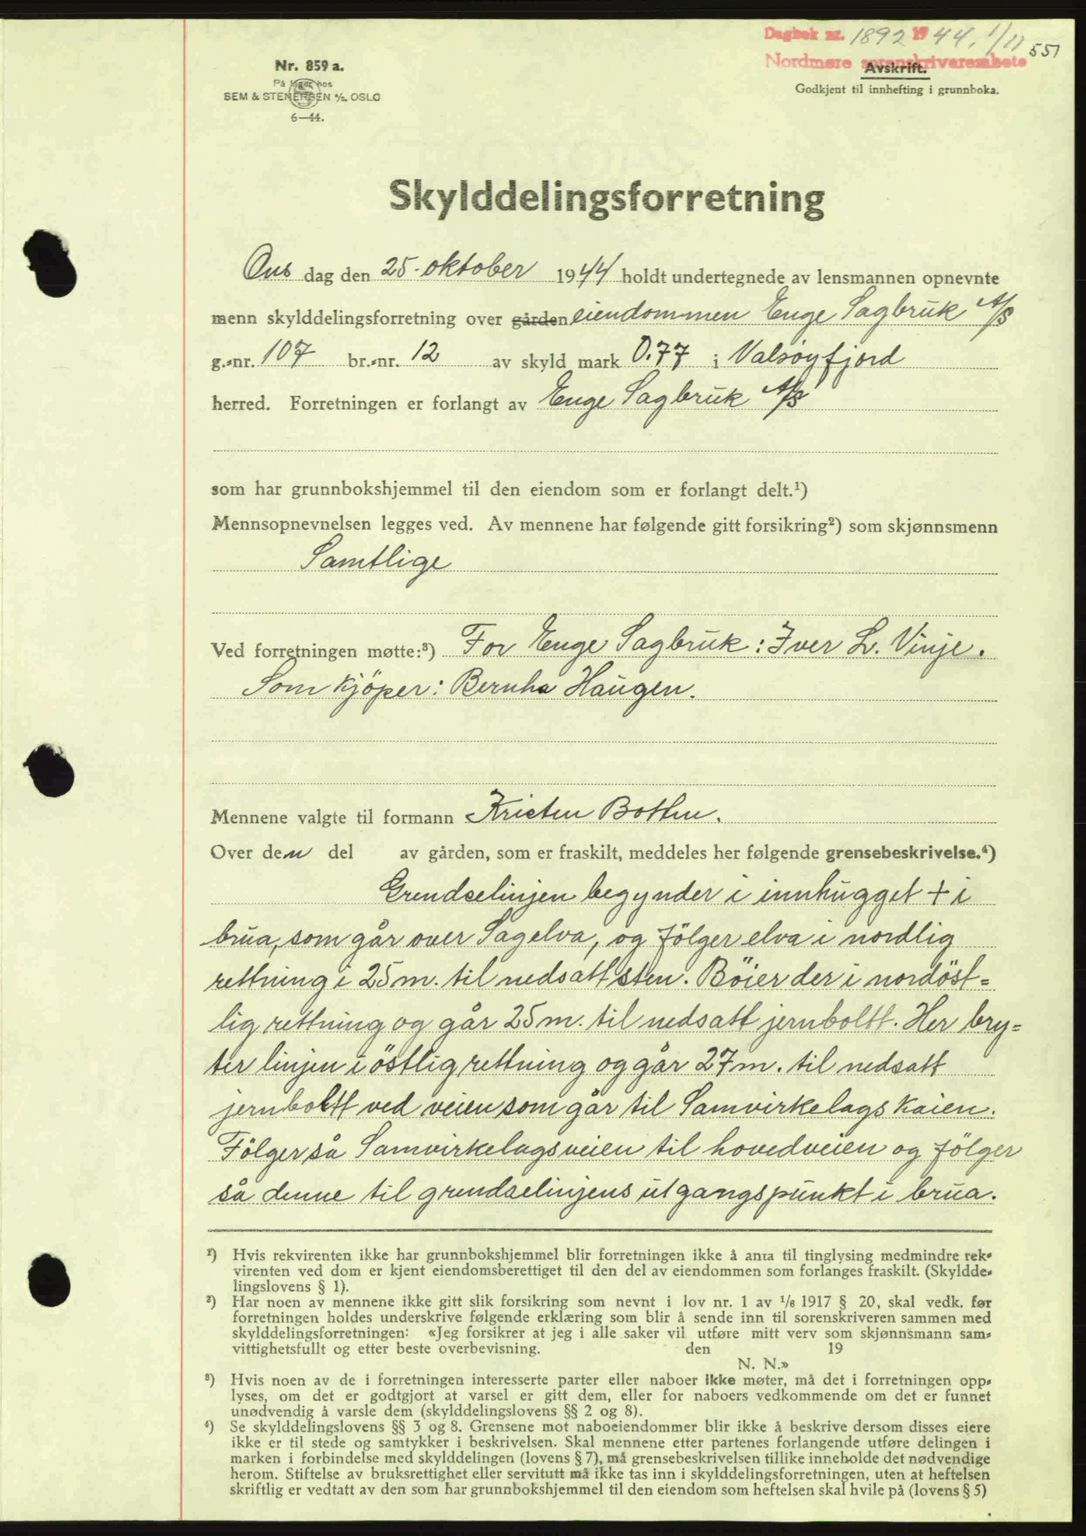 Dagbok nr. 1892 1944. 1/11
551
Nordmøre sorenskriverembete
Avskrift.
Godkjent til innhefting i grunnboka.
Nr. 859 a.
På lager hos
SEM & STENERSEN A/S, OSLO
6—44.
Skylddelingsforretning
Ons dag den 25. oktober 1944 holdt undertegnede av lensmannen opnevnte
menn skylddelingsforretning over gården eiendommen Enge Sagbruk A/S
g.-nr. 107 br.-nr. 12 av skyld mark 0.77 i Valsøyfjord
herred. Forretningen er forlangt av Enge Sagbruk A/S
som har grunnbokshjemmel til den eiendom som er forlangt delt.¹)
Mennsopnevnelsen legges ved. Av mennene har følgende gitt forsikring²) som skjønnsmenn
Samtlige
Ved forretningen møtte:³) For Enge Sagbruk: Iver L. Vinje.
Som kjöper: Bernha Haugen.
Mennene valgte til formann Kristen Botten.
Over den del av gården, som er fraskilt, meddeles her følgende grensebeskrivelse.⁴)
Grendselinjen begynder i innhugget + i
brua, som går over Sagelva, og fölger elva i nordlig
rettning i 25 m. til nedsatt sten. Böier der i nordöst-
lig rettning og går 25 m. til nedsatt jernboltt. Her bry-
ter linjen i östlig rettning og går 27 m. til nedsatt
jernboltt ved veien som går til Samvirkelags kaien.
Fölger så Samvirkelagsveien til hovedveien og fölger
så denne til grendselinjens utgangspunkt i brua.
¹) Hvis rekvirenten ikke har grunnbokshjemmel blir forretningen ikke å anta til tinglysing medmindre rek-
virenten ved dom er kjent eiendomsberettiget til den del av eiendommen som forlanges fraskilt. (Skyldde-
lingslovens § 1).
²) Har noen av mennene ikke gitt slik forsikring som nevnt i lov nr. 1 av 1/6 1917 § 20, skal vedk. før
forretningen holdes underskrive følgende erklæring som blir å sende inn til sorenskriveren sammen med
skylddelingsforretningen: «Jeg forsikrer at jeg i alle saker vil utføre mitt verv som skjønnsmann sam-
vittighetsfullt og etter beste overbevisning. den 19
N. N.»
³) Hvis noen av de i forretningen interesserte parter eller naboer ikke møter, må det i forretningen opp-
lyses, om det er godtgjort at varsel er gitt dem, eller for naboers vedkommende om det er funnet
unødvendig å varsle dem (skylddelingslovens §§ 2 og 8).
⁴) Se skylddelingslovens §§ 3 og 8. Grensene mot naboeiendommer blir ikke å beskrive dersom disses eiere
ikke er til stede og samtykker i beskrivelsen. Skal mennene etter partenes forlangende utføre delingen i
marken i forbindelse med skylddelingen (lovens § 7), må grensebeskrivelsen tillike inneholde det nødvendige
herom. Stiftelse av bruksrettighet eller servitutt må ikke tas inn i skylddelingsforretningen, uten at heftelsen
skriftlig er vedtatt av den som har grunnbokshjemmel til den eiendom som heftelsen skal hvile på (lovens § 5)